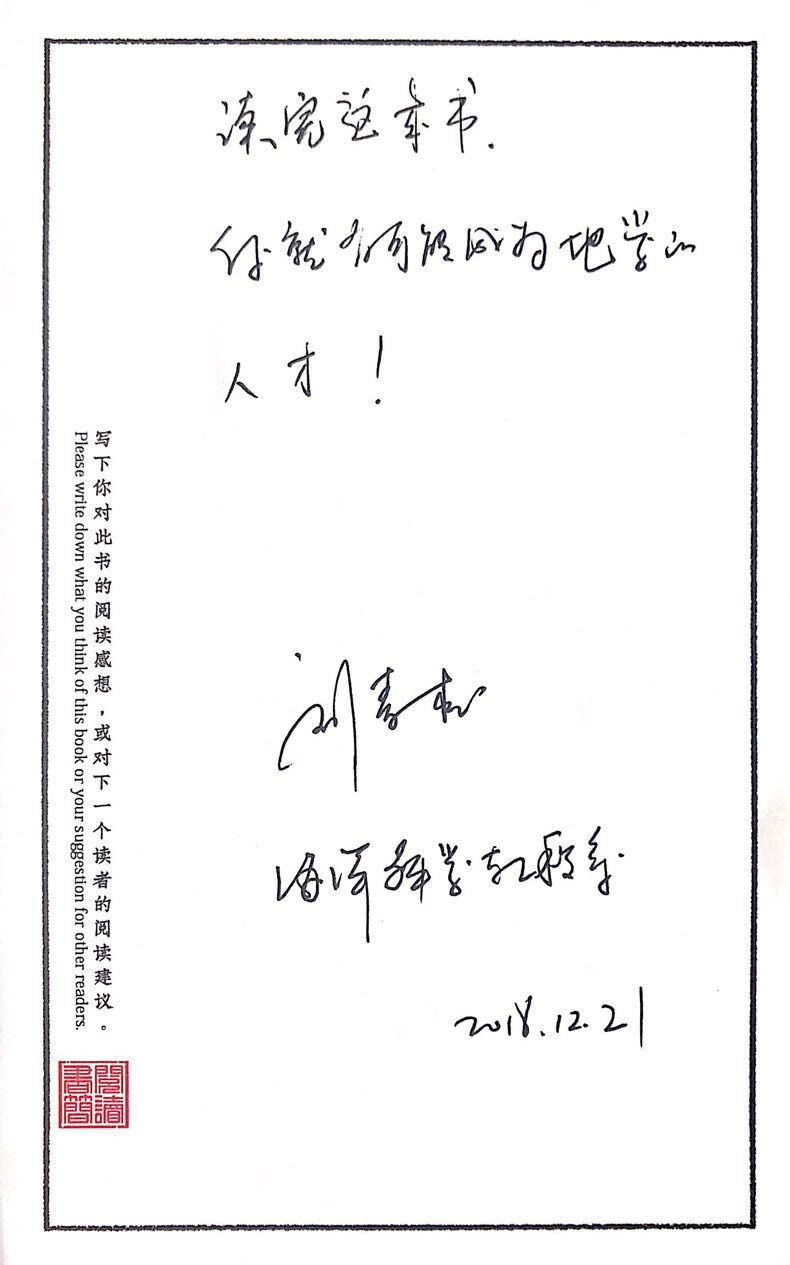 读完这本书.
你就有可能成为地学的
人才!
刘青松
海洋科学与工程系
2018.12.21
写下你对此书的阅读感想，或对下一个读者的阅读建议。
Please write down what you think of this book or your suggestion for other readers.
閱讀
書簡